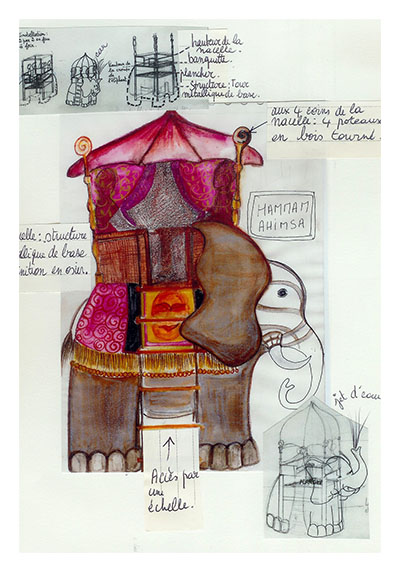 hauteur de la
nacelle.
banquette
plancher.
structure: Tour
métallique de base.
aux 4 coins de la
nacelle: 4 poteaux
en bois tourné.
HAMMAM
AHIMSA
elle: structure
lique de base
nition en osier.
jet d'eau
Accès par
une
échelle.